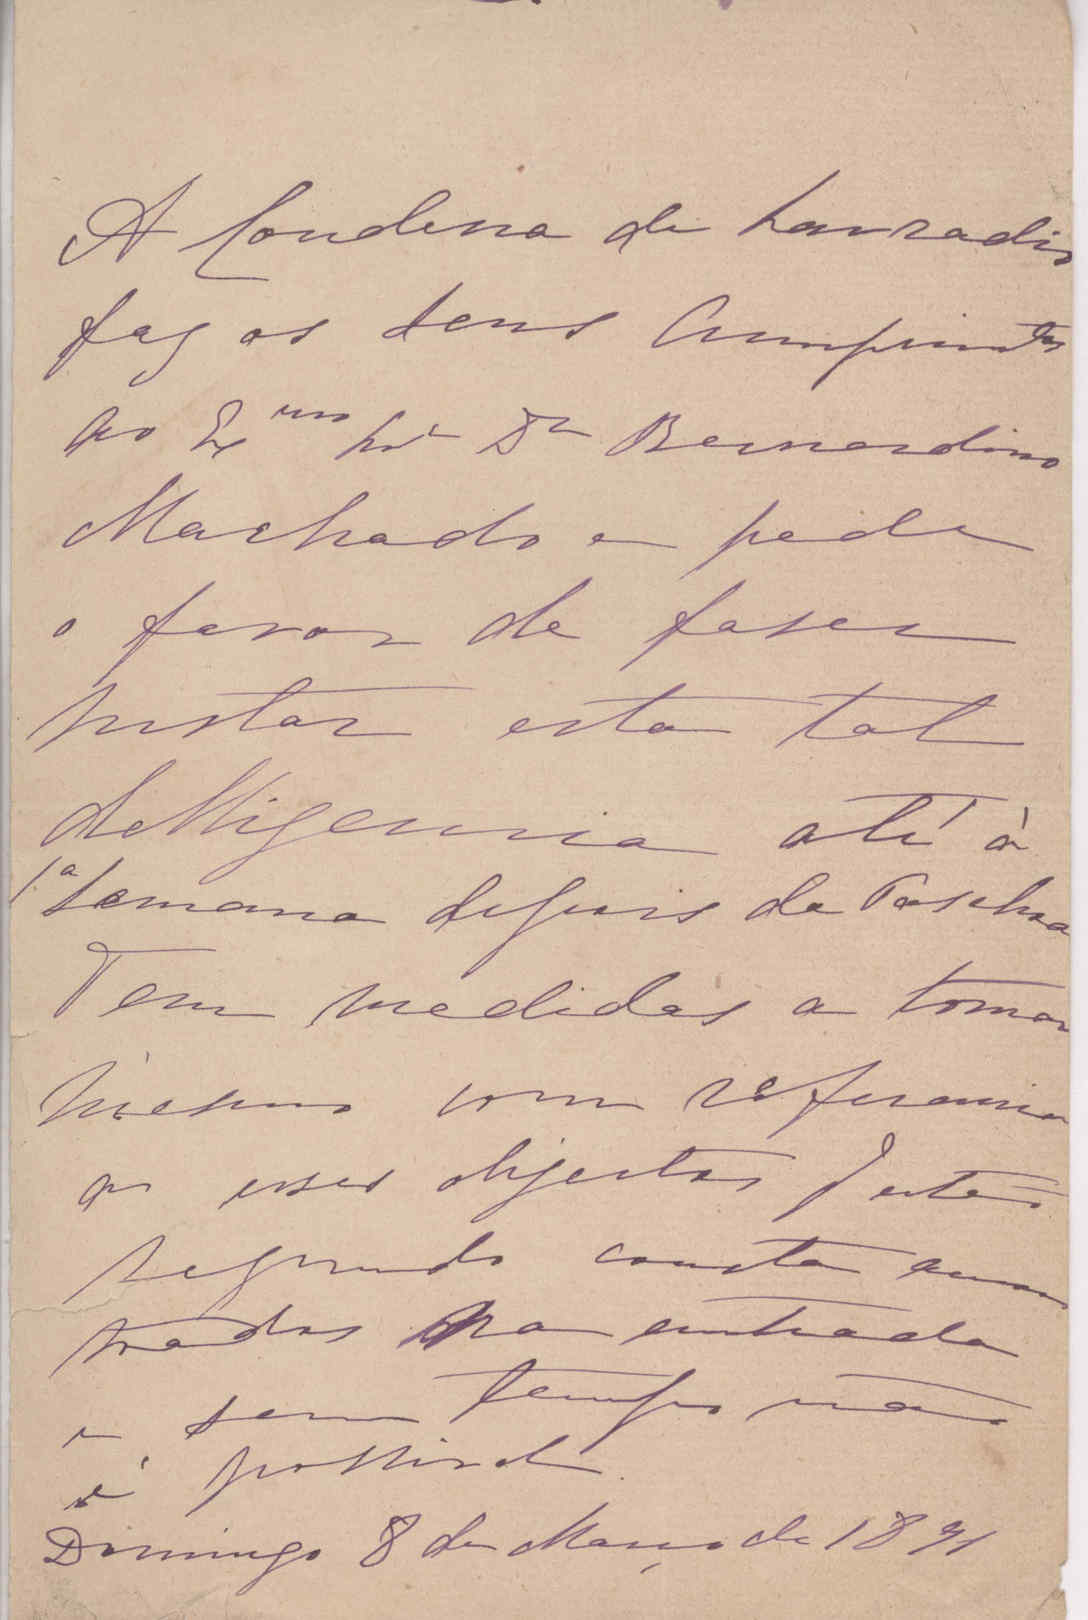 A Condessa de Lavradio
faz os seus Cumprimtos
ao Exmo Snr Dr Bernardino
Machado e pede
o favor de faser
sustar esta tal
delligencia até á
1.ª semana depois da Paschoa
Tem medidas a tomar
mesmo com referencia
a esses objectos
segundo consta
na entrada
e sem tempo não
é possivel.
Domingo 8 de Março de 1891